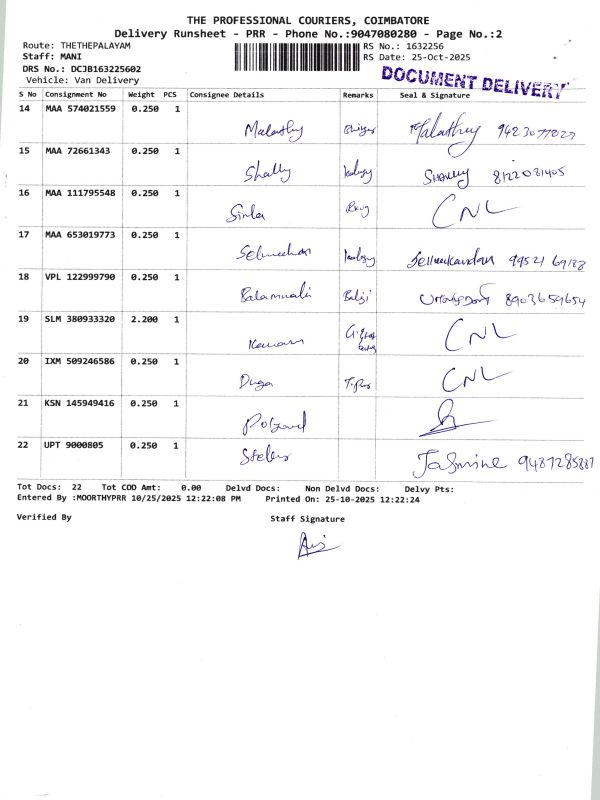 THE PROFESSIONAL COURIERS, COIMBATORE
Delivery Runsheet - PRR - Phone No.:9047080280 - Page No.:2
Route: THETHEPALAYAM RS No.: 1632256
Staff: MANI RS Date: 25-Oct-2025
DRS No.: DCJB163225602
Vehicle: Van Delivery
DOCUMENT DELIVERY
S No Consignment No Weight PCS Consignee Details Remarks Seal & Signature
14 MAA 574021559 0.250 1
Malathy Malathy
15 MAA 72661343 0.250 1
Shally 8122081405
16 MAA 111795548 0.250 1
CNL
17 MAA 653019773 0.250 1
18 VPL 122999790 0.250 1
Balamurali Balaji 8903659654
19 SLM 380933320 2.200 1
CNL
20 IXM 509246586 0.250 1
Durga CNL
21 KSN 145949416 0.250 1
22 UPT 9000805 0.250 1
Jasmine
Tot Docs: 22 Tot COD Amt: 0.00 Delvd Docs: Non Delvd Docs: Delvy Pts:
Entered By :MOORTHYPRR 10/25/2025 12:22:08 PM Printed On: 25-10-2025 12:22:24
Verified By Staff Signature